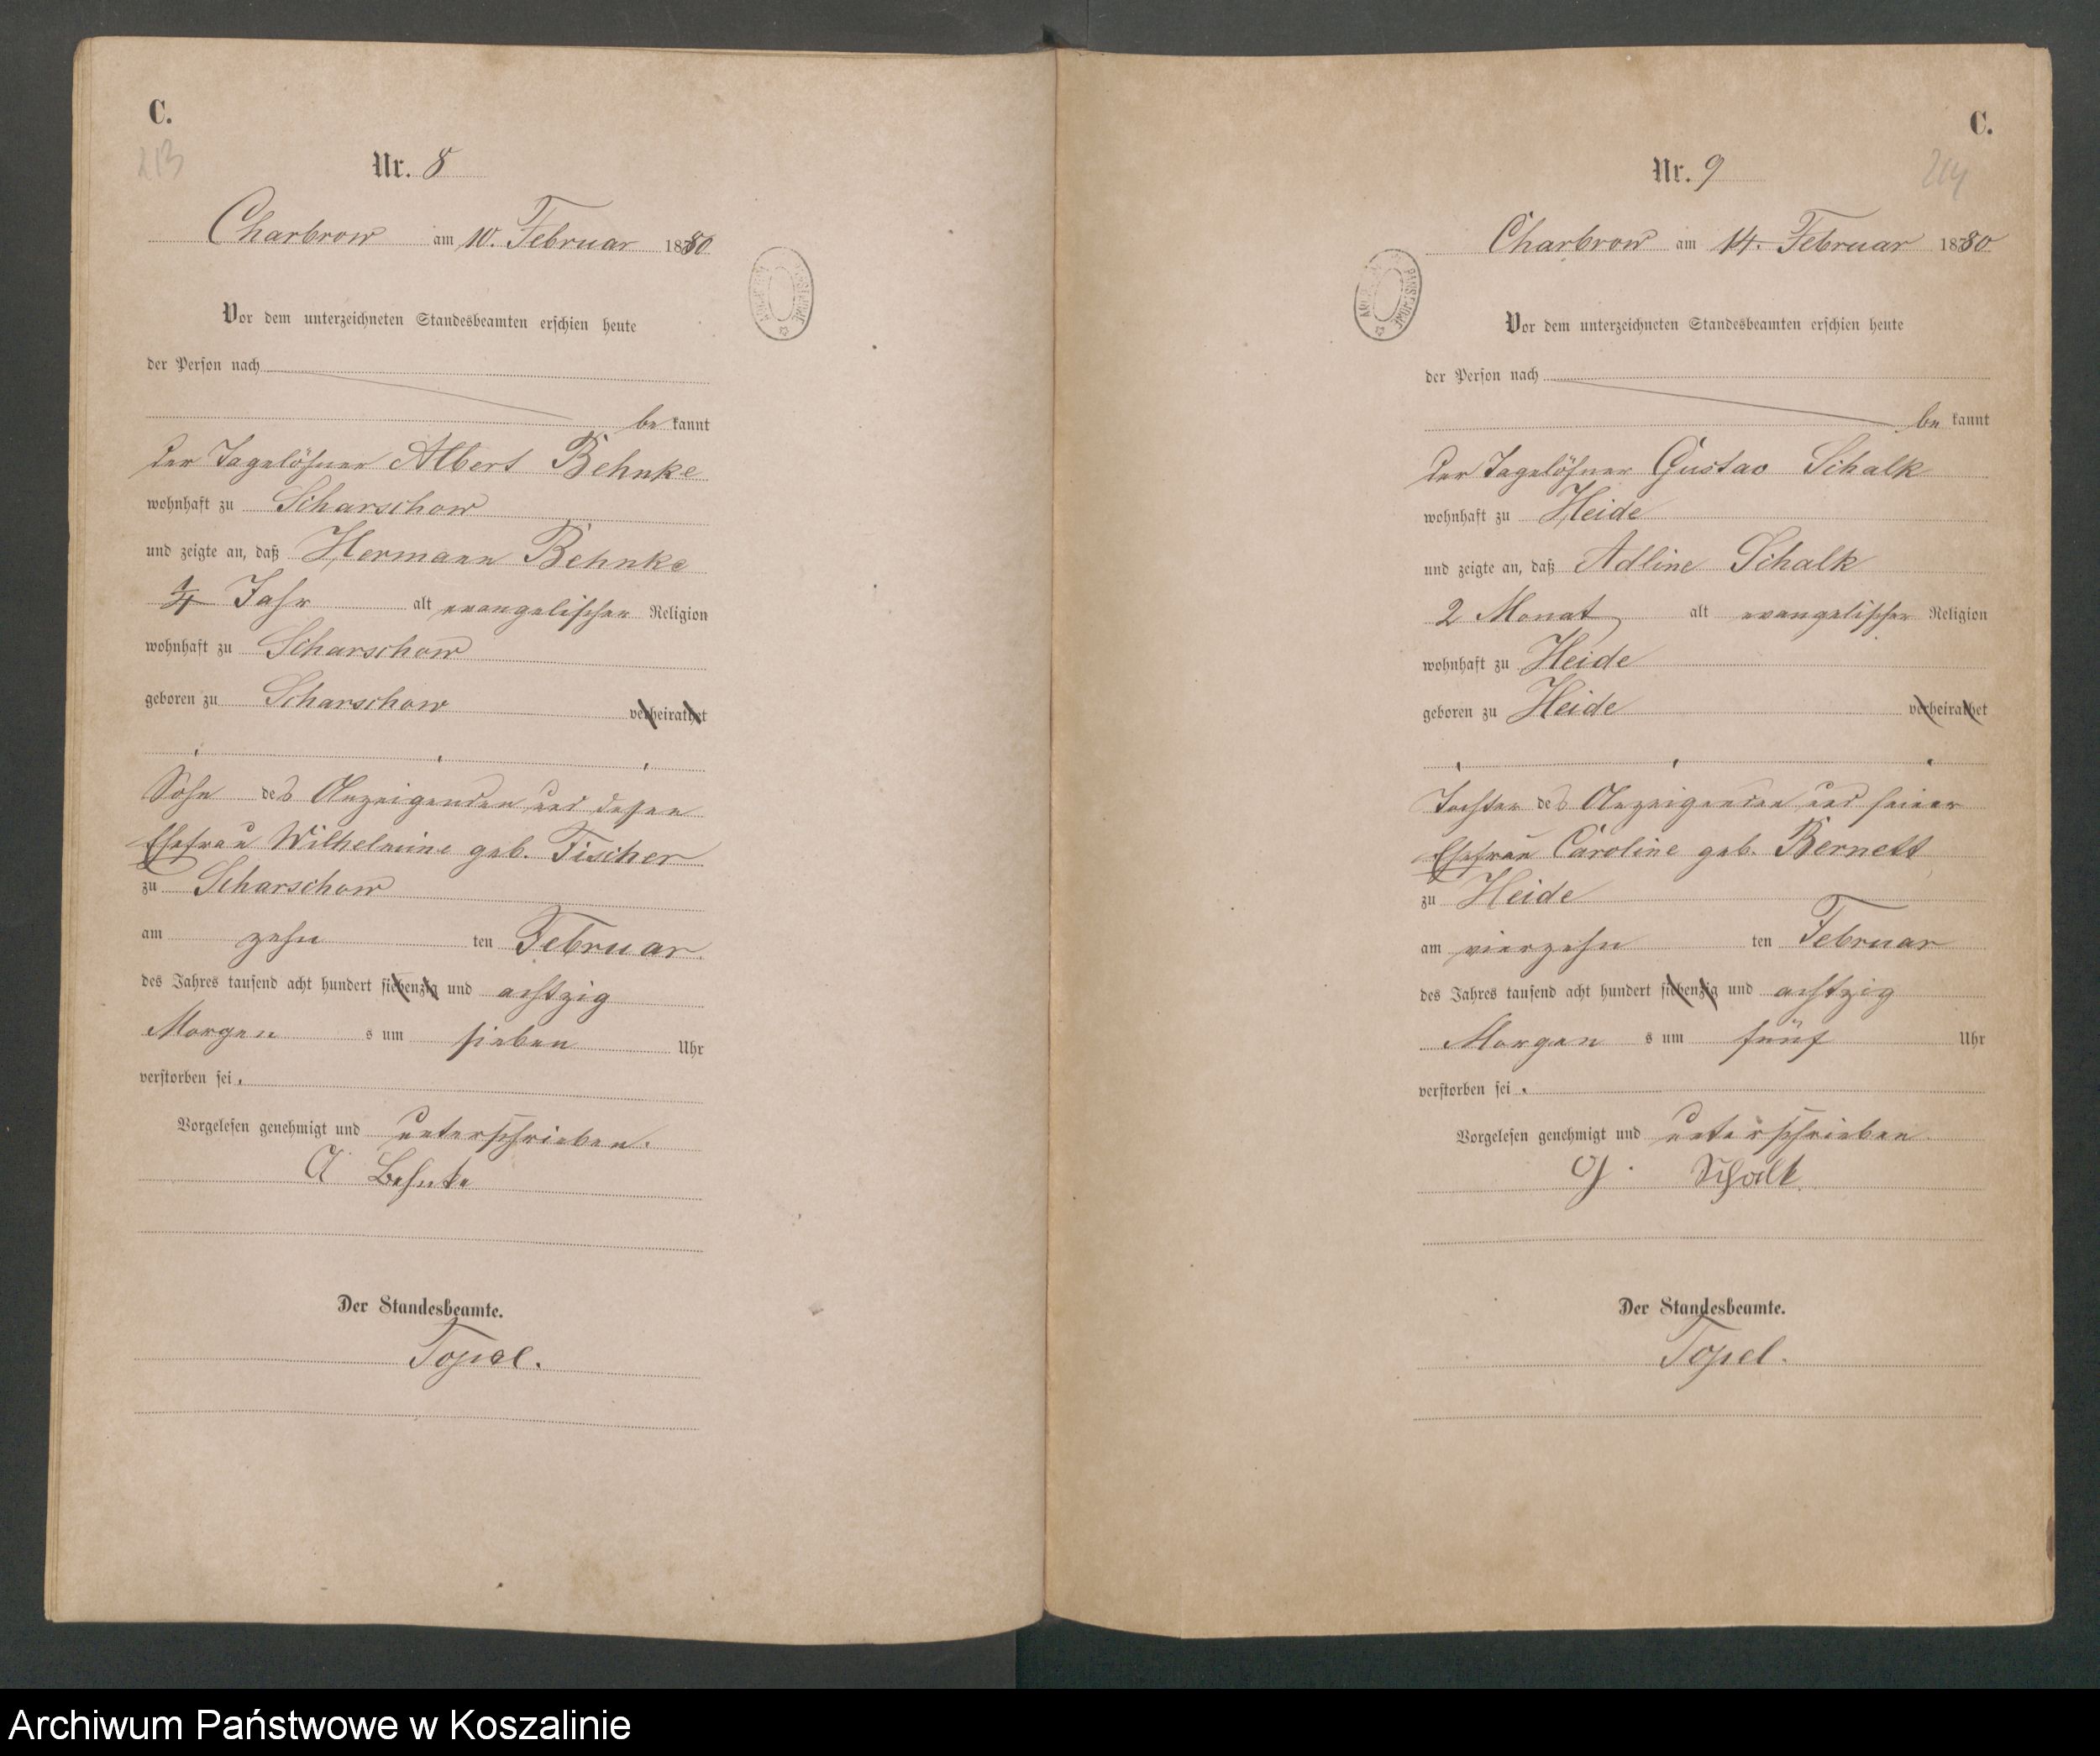 C.
213
Nr. 8
Charbrow am 10. Februar 1880
Vor dem unterzeichneten Standesbeamten erschien heute
der Person nach
be kannt
der Tagelöhner Albert Behnke
wohnhaft zu Scharschow
und zeigte an, daß Hermann Behnke
1/4 Jahr alt evangelischer Religion
wohnhaft zu Scharschow
geboren zu Scharschow verheirathet
Sohn des Anzeigenden und dessen
Ehefrau Wilhelmine geb. Fischer
zu Scharschow
am zehn ten Februar
des Jahres tausend acht hundert siebenzig und achtzig
Morgen s um sieben Uhr
verstorben sei.
Vorgelesen genehmigt und unterschrieben.
A Behnke
Der Standesbeamte.
Topel.
C.
214
Nr. 9
Charbrow am 14. Februar 1880
Vor dem unterzeichneten Standesbeamten erschien heute
der Person nach
be kannt
der Tagelöhner Gustav Schalk
wohnhaft zu Heide
und zeigte an, daß Adline Schalk
2 Monat alt evangelischer Religion
wohnhaft zu Heide
geboren zu Heide verheirathet
Tochter des Anzeigenden und seiner
Ehefrau Caroline geb. Bernett
zu Heide
am vierzehn ten Februar
des Jahres tausend acht hundert siebenzig und achtzig
Morgen s um fünf Uhr
verstorben sei.
Vorgelesen genehmigt und unterschrieben.
G. Schalk
Der Standesbeamte.
Topel.
Archiwum Państwowe w Koszalinie